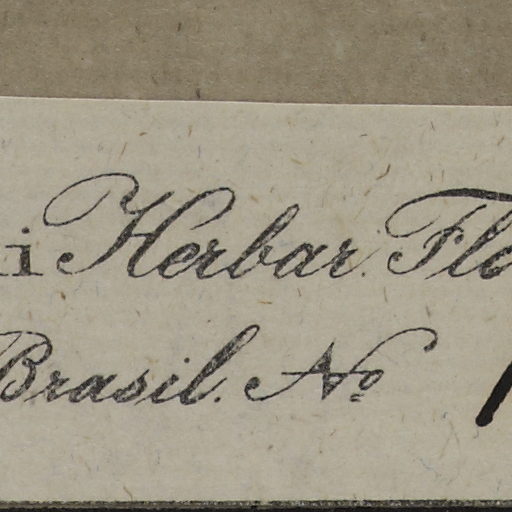 i Herbar. Flo
Brasil. No